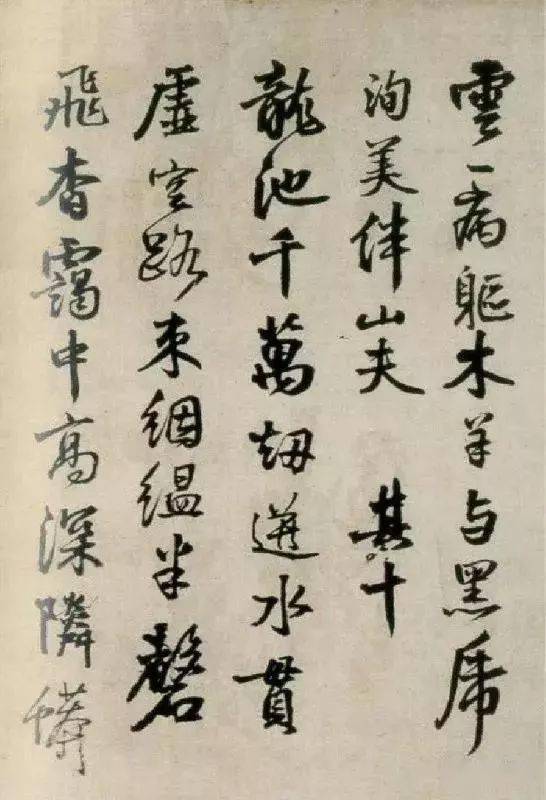 雲一病軀木羊与黑虎
洵美伴山夫 其十
龍池千萬劫迸水貫
虛空路束絪縕半磬
飛杳靄中高深隣